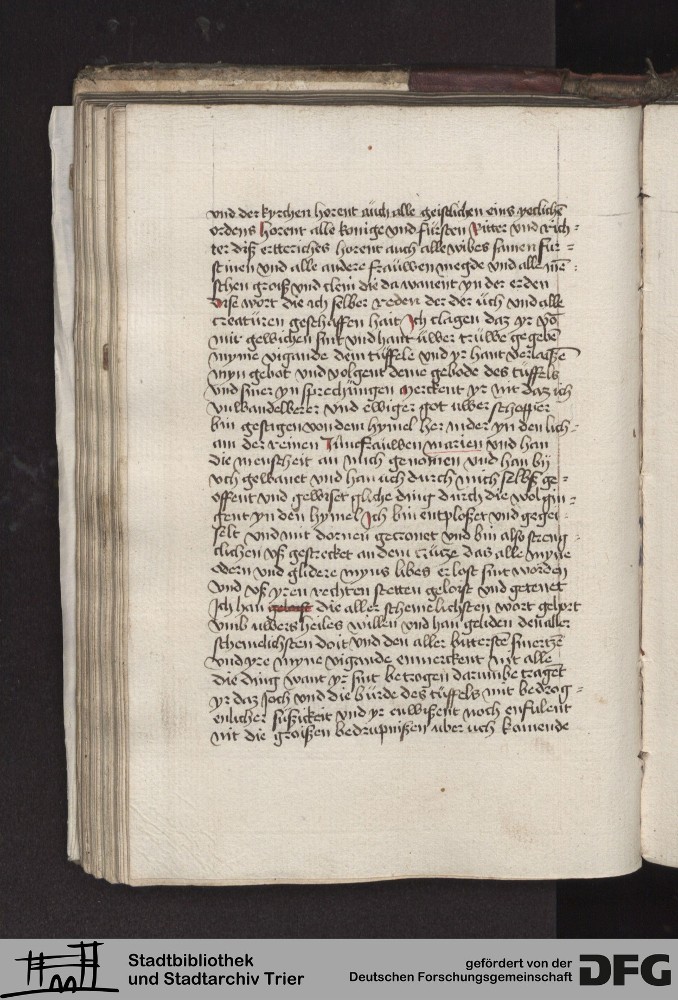 vnd der kyrchen horent auch alle geistlichen eins yetlichē
ordens horent alle konige vnd fursten Ritter vnd rich=
ter diß ertteriches horent auch alle wibes samen fur=
stinen vnd alle andere frauwen megde vnd alle mē=
schen groiß vnd clein die da wanent yn der erden
Dise wort die ich selber reden der der uch vnd alle
creaturen geschaffen hait Ich clagen daz yr vō
mir gewichen sint vnd hant uwer truwe gegebē
myme vigande dem tuffele vnd yr hant verlaißē
myn gebot vnd volgent deme gebode des tuffels
vnd siner yn sprechungen Merckent yr nit daz ich
vnwandelberer vnd ewiger got uwer schopper
bin gestigen von dem hymel her nider yn den lich=
am der reinen Junckfrauwen marien vnd han
die menscheit an mich genomen vnd han by
uch gewanet vnd han uch durch mich selbs ge=
offent vnd gewiset gliche ding durch die wol gin=
gent yn den hymel Ich bin entploßet vnd gegei=
selt vnd mit dornen gecronet vnd bin also streng=
clichen vß gestrecket an dem cruce das alle myne
odern vnd glidere myns libes erlost sint worden
vnd vß yren rechten stetten gelost vnd getenet
Ich han die aller schemelichsten wort gehort
vmb uwers heiles willen vnd han geliden den aller
schemelichsten doit vnd den aller bittersten smertzē
vnd yre myne vigande enmerckent nit alle
die ding want yr sint betrogen darumbe traget
yr daz Joch vnd die burde des tuffels mit bedrog=
enlicher sußickeit vnd yr enwißent noch enfulent
nit die groißen bedrupnißen uber uch komende
Stadtbibliothek
und Stadtarchiv Trier
gefördert von der
Deutschen Forschungsgemeinschaft
DFG